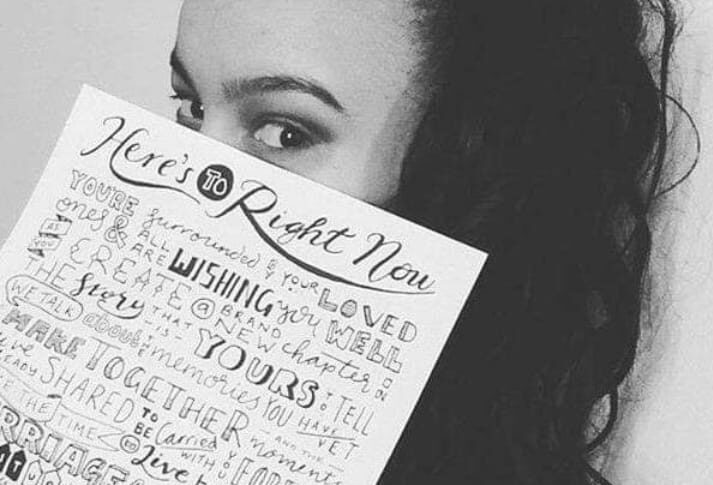 Here's TO Right Now
YOU'RE surrounded BY YOUR LOVED
ones & ALL ARE WISHING you WELL
AS YOU CREATE a BRAND NEW chapter IN
THE Story THAT IS YOURS TO TELL
WE TALK about THE memories YOU HAVE YET
MAKE TOGETHER AND THE moments
SHARED TO BE Carried WITH YOU
THE TIME TO Live